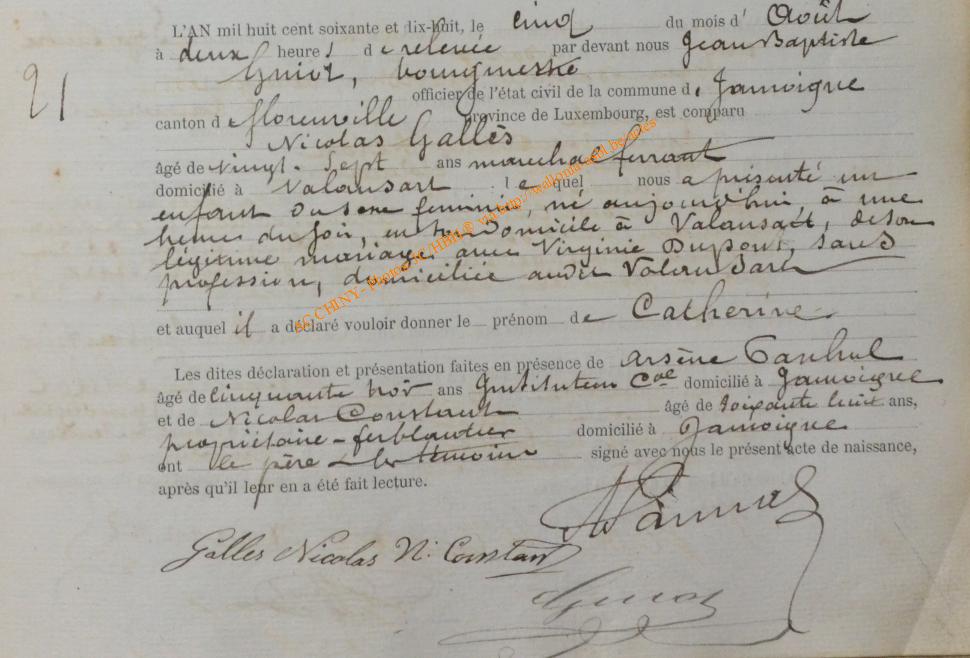 L'AN mil huit cent soixante et dix-huit, le cinq du mois d' Août
à deux heures de relevée par devant nous Jean Baptiste
Guiot, bourgmestre
officier de l'état civil de la commune de Jamoigne
21
canton de Florenville province de Luxembourg, est comparu
Nicolas Gallès
âgé de vingt-sept ans marechal ferrant
domicilié à Valansart lequel nous a présenté un
enfant du sexe feminin, né aujourd'hui, à une
heures du soir, en son domicile à Valansart, de son
légitime mariage avec Virginie Dupont, sans
profession, domiciliée audit Valansart
et auquel il a déclaré vouloir donner le prénom de Catherine
Les dites déclaration et présentation faites en présence de Arsène
âgé de cinquante trois ans Instituteur Cal domicilié à Jamoigne
et de Nicolas Constant âgé de soixante huit ans,
propriétaire - ferblantier domicilié à Jamoigne
ont le père et les témoins signé avec nous le présent acte de naissance,
après qu'il leur en a été fait lecture.
Galles Nicolas N. Constant
Guiot
SC CHINY - Photos SC/HBH © via http://wallonia-asbl.be/actes